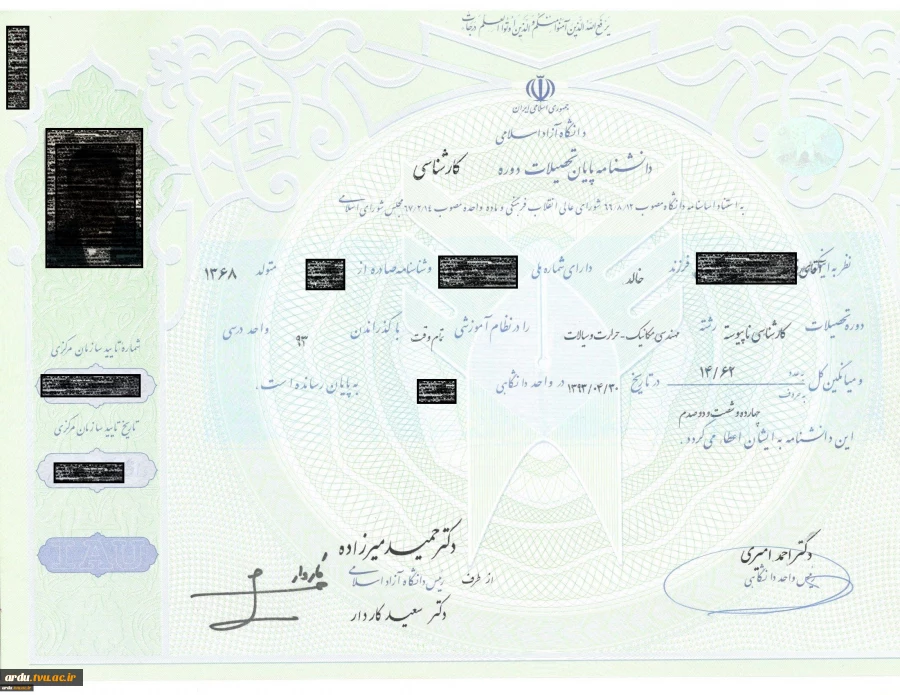 یرفع الله الذین آمنوا منکم و الذین اوتوا العلم درجات
جمهوری اسلامی ایران
دانشگاه آزاد اسلامی
دانشنامه پایان تحصیلات دوره کارشناسی
به استناد اساسنامه دانشگاه مصوب ۶۶/۸/۱۲ شورای عالی انقلاب فرهنگی و ماده واحده مصوب ۶۷/۲/۱۴ مجلس شورای اسلامی
نظر به اینکه آقای فرزند خالد دارای شماره ملی و شناسنامه صادره از متولد ۱۳۶۸
دوره تحصیلات کارشناسی ناپیوسته رشته مهندسی مکانیک - حرارت و سیالات را در نظام آموزشی تمام وقت با گذراندن ۹۳ واحد درسی
و میانگین کل به عدد ۱۴/۶۲ در تاریخ ۱۳۹۳/۰۴/۳۰ در واحد دانشگاهی به پایان رسانده است.
به حروف چهارده و شصت و دو صدم
این دانشنامه به ایشان اعطار می گردد.
شماره تایید سازمان مرکزی
تاریخ تایید سازمان مرکزی
IAU
دکتر احمد امیری
رئیس واحد دانشگاهی
دکتر حمید میرزاده
از طرف رئیس دانشگاه آزاد اسلامی
دکتر سعید کاردار
ardu.tvu.ac.ir
ardu.tvu.ac.ir